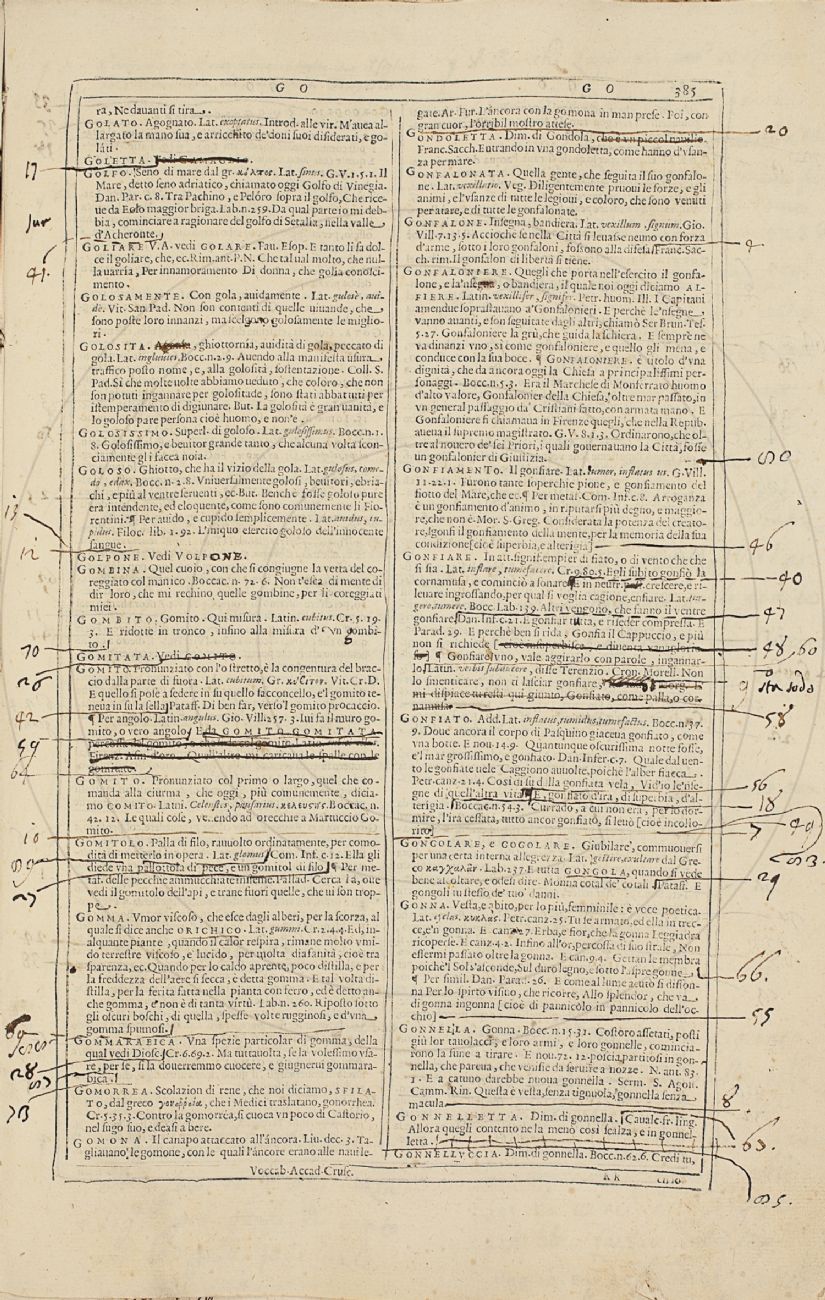 G O
G O 385
ra, Ne dauanti si tira.
GOLATO. Agognato. Lat. exoptatus. Introd. alle vir. M'auea al-
largato la mano sua, e arricchito de' doni suoi disiderati, e go-
lati.
GOLETTA. Vedi
GOLFO. Seno di mare dal gr. κόλπος. Lat. sinus. G. V. 1. 5. 1. Il
Mare, detto seno adriatico, chiamato oggi Golfo di Vinegia.
Dan. Par. c. 8. Tra Pachino, e Peloro sopra il golfo, Che rice-
ue da Euro maggior briga. Lab. n. 259. Da qual parte io mi deb-
bia, cominciare a ragionare del golfo di Setalia, nella valle
d'Acheronte.
GOLIARE V. A. vedi GOLARE. Fau. Esop. E tanto li fa dol-
ce il goliare, che, ec. Rim. ant. P. N. Che tal ual molto, che nul-
la uarria, Per innamoramento Di donna, che golia conosci-
mento.
GOLOSAMENTE. Con gola, auidamente. Lat. gulosè, aui-
dè. Vit. San. Pad. Non son contenti di quelle uiuande, che
sono poste loro innanzi, ma scelgono golosamente le miglio-
ri.
GOLOSITA. , ghiottornia, auidità di gola, peccato di
gola. Lat. ingluuies, Bocc. n. 2. 9. Auendo alla manifesta usura
traffico posto nome, e, alla golosità, sostentazione. Coll. S.
Pad. Sì che molte uolte abbiamo ueduto, che coloro, che non
son potuti ingannare per golositade, sono stati abbattuti per
istemperamento di digiunare. But. La golosità è gran uanità, e
lo goloso pare persona cioè huomo, e non'è.
GOLOSISSIMO. Superl. di goloso. Lat. gulosissimus. Bocc. n. 1.
8. Golosissimo, e beuitor grande tanto, che alcuna volta scon-
ciamente gli facea noia.
GOLOSO. Ghiotto, che ha il vizio della gola. Lat. gulosus, come-
do, edax. Bocc. n. 2. 8. Vniuersalmente golosi, beuitori, ebria-
chi, e più al ventre seruenti, ec. But. Benchè fosse goloso pure
era intendente, ed eloquente, come sono comunemente li Fio-
rentini. ¶ Per auido, e cupido semplicemente. Lat. auidus, cu-
pidus. Filoc. lib. 1. 92. L'iniquo esercito goloso dell'innocente
sangue.
GOLPONE. Vedi VOLPONE.
GOMBINA. Quel cuoio, con che si congiugne la vetta del co-
reggiato col manico. Boccac. n. 72. 6. Non t'esca di mente di
dir loro, che mi rechino quelle gombine, per li coreggiati
miei.
GOMBITO, Gomito. Qui misura. Latin. cubitus. Cr. 5. 19.
3. E ridotte in tronco, infino alla misura d'un gombi-
to.
GOMITATA. Vedi GOMITO.
GOMITO. Pronunziato con l'o stretto, è la congentura del brac-
cio dalla parte di fuora. Lat. cubitum, Gr. Vit. Cr. D.
E quello si pose a sedere in su quello facconcello, e'l gomito te-
neua in su la sella. Pataff. Di ben far, verso'l gomito procaccio.
¶ Per angolo. Latin angulus. Gio. Vill. 257. 3. lui fa il muro go-
mito, o vero angolo. E da GOMITO GOMITATA
percossa del gomito
gomitate.
GOMITO. Pronunziato col primo o largo, quel che co-
manda alla ciurma, che oggi, più comunemente, dicia-
mo COMITO. Latni. Celeustes, pausarius, κελευστὴς. Boccac. n.
42. 12. Le quali cose, vedendo ad orecchie a Martuccio Go-
mito.
GOMITOLO. Palla di filo, rauuolto ordinatamente, per como-
dità di metterlo in opera. Lat. glomus. Com. Inf. c. 12. Ella gli
diede vna pallottola di pece, e un gomitol di filo. ¶ Per me-
taf. delle pecchie ammucchiate insieme. Pallad. Cerca là, oue
vedi il gomitolo dell'api, e trane fuori quelle, che ui son trop-
pe.
GOMMA. Vmor viscoso, che esce dagli alberi, per la scorza, al
quale si dice anche ORICHICO. Lat. gummi. Cr. 2. 4. 4. Ed, in
alquante piante, quando il calor respira, rimane molto vmi-
do terrestre viscoso, e lucido, per molta diafanità, cioè tra
sparenza, ec. Quando per lo caldo aprente, poco distilla, e per
la freddezza dell'aere si secca, e detta gomma. E tal volta di-
stilla, per la ferita fatta nella pianta con ferro, ed è detto an-
che gomma, e non è di tanta virtù. Lab. n. 260. Riposto sotto
gli oscuri boschi, di quella, spesse volte rugginosi, ed vna
gomma spumosi.
GOMMARABICA. Vna spezie particolar di gomma, della
qual vedi Diosc. Cr. 6. 69. 2. Ma tuttauolta, se la volessimo vsa-
re, per se, si la doueremmo cuocere, e giugnerui gommara-
bica.
GOMORREA. Scolazion di rene, che noi diciamo, SFILA-
TO, dal greco γονόρροια, che i Medici traslatano, gonorrhea.
Cr. 5. 35. 3. Contro la gomorrea, si cuoca vn poco di Castorio,
nel sugo suo, e deasi a bere.
GOMONA. Il canapo attaccato all'áncora. Liu. dec. 3. Ta-
gliauano le gomone, con le quali l'áncore erano alle naui le-
Vocab. Accad. Crusc.
gate. Ar. Fur. L'áncora con la gomona in man prese. Poi, con
gran cuor, l'orribil mostro attese.
GONDOLETTA. Dim. di Gondola, che è vn piccol nauilio.
Franc. Sacch. Entrando in vna gondoletta, come hanno d'vsan-
za per mare.
GONFALONATA. Quella gente, che seguita il suo gonfalo-
ne. Lat. vexillatio. Veg. Diligentemente pruoui le forze, e gli
animi, e l'vsanze di tutte le legioni, e coloro, che sono venuti
per atare, e di tutte le gonfalonate.
GONFALONE. Insegna, bandiera. Lat. vexillum, signum. Gio.
Vill. 7. 13. 5. Acciocchè se nella Città si leuasse neuno con forza
d'arme, sotto i loro gonfaloni, fossono alla difesa. Franc. Sac-
ch. rim. Il gonfalon di libertà si tiene.
GONFALONIERE. Quegli che porta nell'esercito il gonfa-
lone, e la'nsegna, o bandiera, il quale noi oggi diciamo AL-
FIERE. Latin. vexillifer, signifer. Petr. huom. Ill. I Capitani
amendue soprastauano a' Gonfalonieri. E perchè le'nsegne
vanno auanti, e son seguitate dagli altri, chiamò Ser Brun. Tes.
5. 27. Gonfaloniere la grù, che guida la schiera. E sempre ne
va dinanzi vno, si come gonfaloniere, e quello gli mena, e
conduce con la sua boce. ¶ GONFALONIERE. è titolo d'vna
dignità, che da ancora oggi la Chiesa a principalissimi per-
sonaggi. Bocc. n. 5. 3. Era il Marchese di Monferrato huomo
d'alto valore, Gonfalonier della Chiesa, oltre mar passato, in
vn general passaggio da' Cristiani fatto, con armata mano. E
Gonfaloniere si chiamaua in Firenze quegli, che nella Repub.
aueua il supremo magistrato. G. V. 8. 1. 3. Ordinarono, che ol-
tre al nouero de' sei Priori, i quali gouernauano la Città, fosse
un gonfalonier di Giustizia.
GONFIAMENTO. Il gonfiare. Lat. tumor, inflatus us. G. Vill.
11. 22. 1. Furono tante soperchie pione, e gonfiamento del
fiotto del Mare, che ec. ¶ Per metaf. Com. Inf. c. 8. Arroganza
è un gonfiamento d'animo, in riputarsi più degno, e maggio-
re, che non è. Mor. S. Greg. Considerata la potenza del creato-
re, sgonfi il gonfiamento della mente, per la memoria della sua
condizione [cioè superbia, e alterigia]
GONFIARE. In att. signif. empier di fiato, o di vento che che
si sia. Lat. inflare, tumefacere. Cr. 9. 80. 5. Egli subito gonfiò la
cornamusa, e cominciò a sonare. E in neutr. crescere, e ri-
leuare ingrossando, per qual si voglia cagione, enfiare. Lat. tur-
gere, tumere. Bocc. Lab. 139. Altri vengono, che fanno il ventre
gonfiare. Dan. Inf. c. 21. E gonfiar tutta, e riseder compressa. E
Parad. 29. E perchè ben si rida, Gonfia il Cappuccio, e più
non si richiede
¶ Gonfiare vno, vale aggirarlo con parole, ingannar-
lo. Latin. verbis subducere, disse Terenzio. Cron. Morell. Non
lo smenticare, non ti lasciar gonfiare,
mi dispiaceresti qui giunto, Gonfiato, come palla, o coc-
namusa.
GONFIATO. Add. Lat. inflatus, tumidus, tumefactus. Bocc. n. 37.
9. Doue ancora il corpo di Pasquino giaceua gonfiato, come
vna botte. E nou. 14. 9. Quantunque oscurissima notte fosse,
e'l mar grossissimo, e gonfiato. Dan. Infer. c. 7. Quale dal uen-
to le gonfiate uele Caggiono auuolte, poichè l'alber fiacca.
Petr. canz. 21. 4. Così di su dalla gonfiata vela, Vid'io le'nse-
gne di quell'altra vita. E, gonfiato d'ira, di superbia, d'al-
terigia. Boccac. n. 54. 3. Currado, a cui non era, per lo dor-
mire, l'ira cessata, tutto ancor gonfiato, si leuò [cioè incollo-
rito]
GONGOLARE, e GOGOLARE. Giubilare, commuouersi
per una certa interna allegrezza. Lat. gestire, exultare dal Gre-
co καγχαλᾷν. Lab. 237. E tutta GONGOLA, quando si vede
bene ascoltare, e odesi dire. Monna cotal de' cotali. Pataff. E
gongoli tu stesso de' tuo' danni.
GONNA. Vesta, e abito, per lo più, femminile: è voce poetica.
Lat. cyclas. κυκλὰς. Petr. canz. 25. Tu se armato, ed ella in trec-
ce, e'n gonna. E canz. 27. Erba, e fior, che la gonna Leggiadra
ricoperse. E canz. 4. 2. Infino allor, percossa di suo strale, Non
essermi passato oltre la gonna. E can. 9. 4. Gettan le membra
poichè'l Sol s'asconde, Sul duro legno, e sotto l'aspre gonne.
¶ Per simil. Dan. Parad. 26. E come al lume acuto si disson-
na Per lo spirto visiuo, che ricorre, Allo splendor, che va
di gonna in gonna [cioè di pannicolo in pannicolo dell'oc-
chio]
GONNELLA. Gonna. Bocc. n. 15. 32. Costoro assetati, posti
giù lor tauolacci, e loro armi, e loro gonnelle, comincia-
rono la fune a tirare. E nou. 72. 12. poscia, partitosi in gon-
nella, che pareua, che venisse da seruire a nozze. N. ant. 83.
1. E a catuno darebbe nuoua gonnella. Serm. S. Agou.
Camm. Rin. Questa è vesta, senza tignuola, gonnella senza
macula.
GONNELLETTA. Dim. di gonnella. Caualc. fr. ling.
Allora quegli contento ne la menò così scalza, e in gonnel-
letta.
GONNELLVCCIA. Dim. di gonnella. Bocc. n. 62. 6. Credi tu,
KK
17
41.
13
12
70
26
42
59
64
10
25
28
20
46
40
47
48, 60
58
56
18
7
49
29
66.
55
8
63.